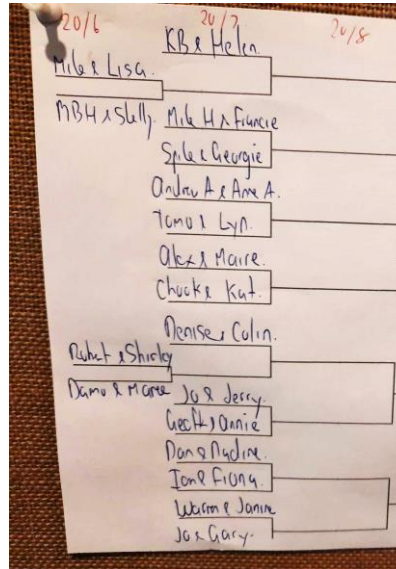 20/6 20/7 20/8
KB & Helen.
Mike & Lisa.
MBH & Shelly. Mike H & Francie
Spike & Georgie
Andrew A & Anne A.
Tomo & Lyn.
Alex & Maire.
Chook & Kat.
Denise & Colin.
Robert & Shirley
Damo & Marie Jo & Jerry.
Geoff & Annie
Dan & Nadine.
Ian & Fiona.
Warren & Janine
Jo & Gary.